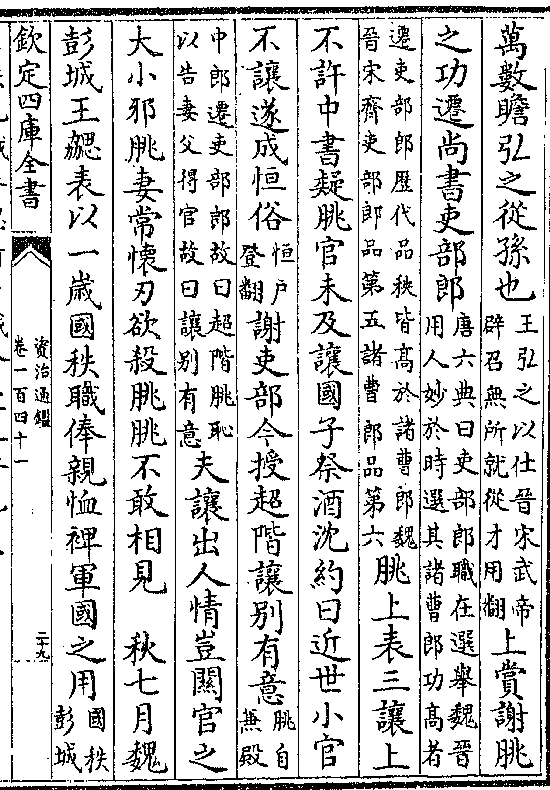 萬數瞻弘之從孫也王弘之以仕晉宋武帝辟召無所就從才用翻上賞謝朓
之功遷尚書吏部郎唐六典曰吏部郎職在選舉魏晉用人妙於時選其諸曹郎功高者
遷吏部郎歷代品秩皆髙於諸曹郎魏晉宋齊吏部郎品第五諸曹郎品第六朓上表三讓上
不許中書疑朓官未及讓國子祭酒沈約曰近世小官
不讓遂成恒俗恒戶登翻謝吏部今授超階讓别有意朓自兼殿
中郎遷吏部郎故曰超階朓恥以告妻父得官故曰讓别有意夫讓出人情豈關官之
大小邪朓妻常懷刃欲殺朓朓不敢相見 秋七月魏
彭城王勰表以一歲國秩職俸親恤裨軍國之用國秩彭城
欽定四庫全書
資治通鑑
卷一百四十一
二十九